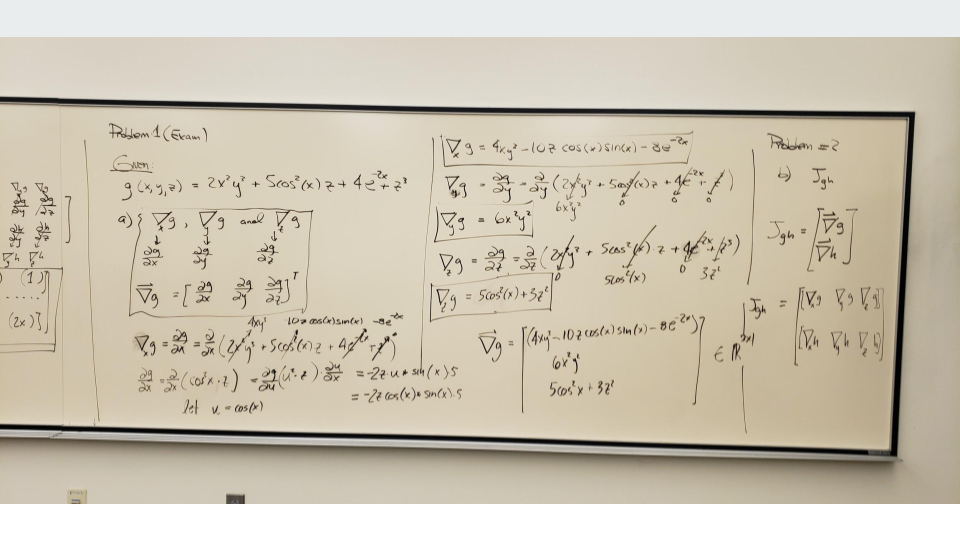 Problem 1 (Exam)
Given:
g(x,y,z) = 2x²y³ + 5cos²(x)z + 4e^-2x + z³
a) { ∇ₓg, ∇ᵧg and ∇_z g
↓ ↓ ↓
∂g/∂x ∂g/∂y ∂g/∂z
∇g = [∂g/∂x ∂g/∂y ∂g/∂z]ᵀ
4xy³ 10z cos(x)sin(x) -8e^-2x
∇ₓg = ∂g/∂x = ∂/∂x (2x²y³ + 5cos²(x)z + 4e^-2x + z³)
∂g/∂x = ∂/∂x (cos²x·z) = ∂g/∂u (u²·z)·∂u/∂x = -2z·u * sin(x)5
let u = cos(x) = -2z cos(x)*sin(x)·5
∇ₓg = 4xy³ - 10z cos(x)sin(x) - 8e^-2x
∇ᵧg = ∂g/∂y = ∂/∂y (2x²y³ + 5cos²(x)z + 4e^-2x + z³)
6x²y² 0 0 0
∇ᵧg = 6x²y²
∇_z g = ∂g/∂z = ∂/∂z (2x²y³ + 5cos²(x)·z + 4e^-2x + z³)
0 5cos²(x) 0 3z²
∇_z g = 5cos²(x) + 3z²
∇g = [(4xy³ - 10z cos(x)sin(x) - 8e^-2x)
6x²y²
5cos²x + 3z²] ∈ ℝ^3x1
Problem #2
b) J_gh
J_gh = [∇g
∇h]
J_gh = [[∇ₓg ∇ᵧg ∇_z g]
[∇ₓh ∇ᵧh ∇_z h]]
(1)]
.....
(2x)]]